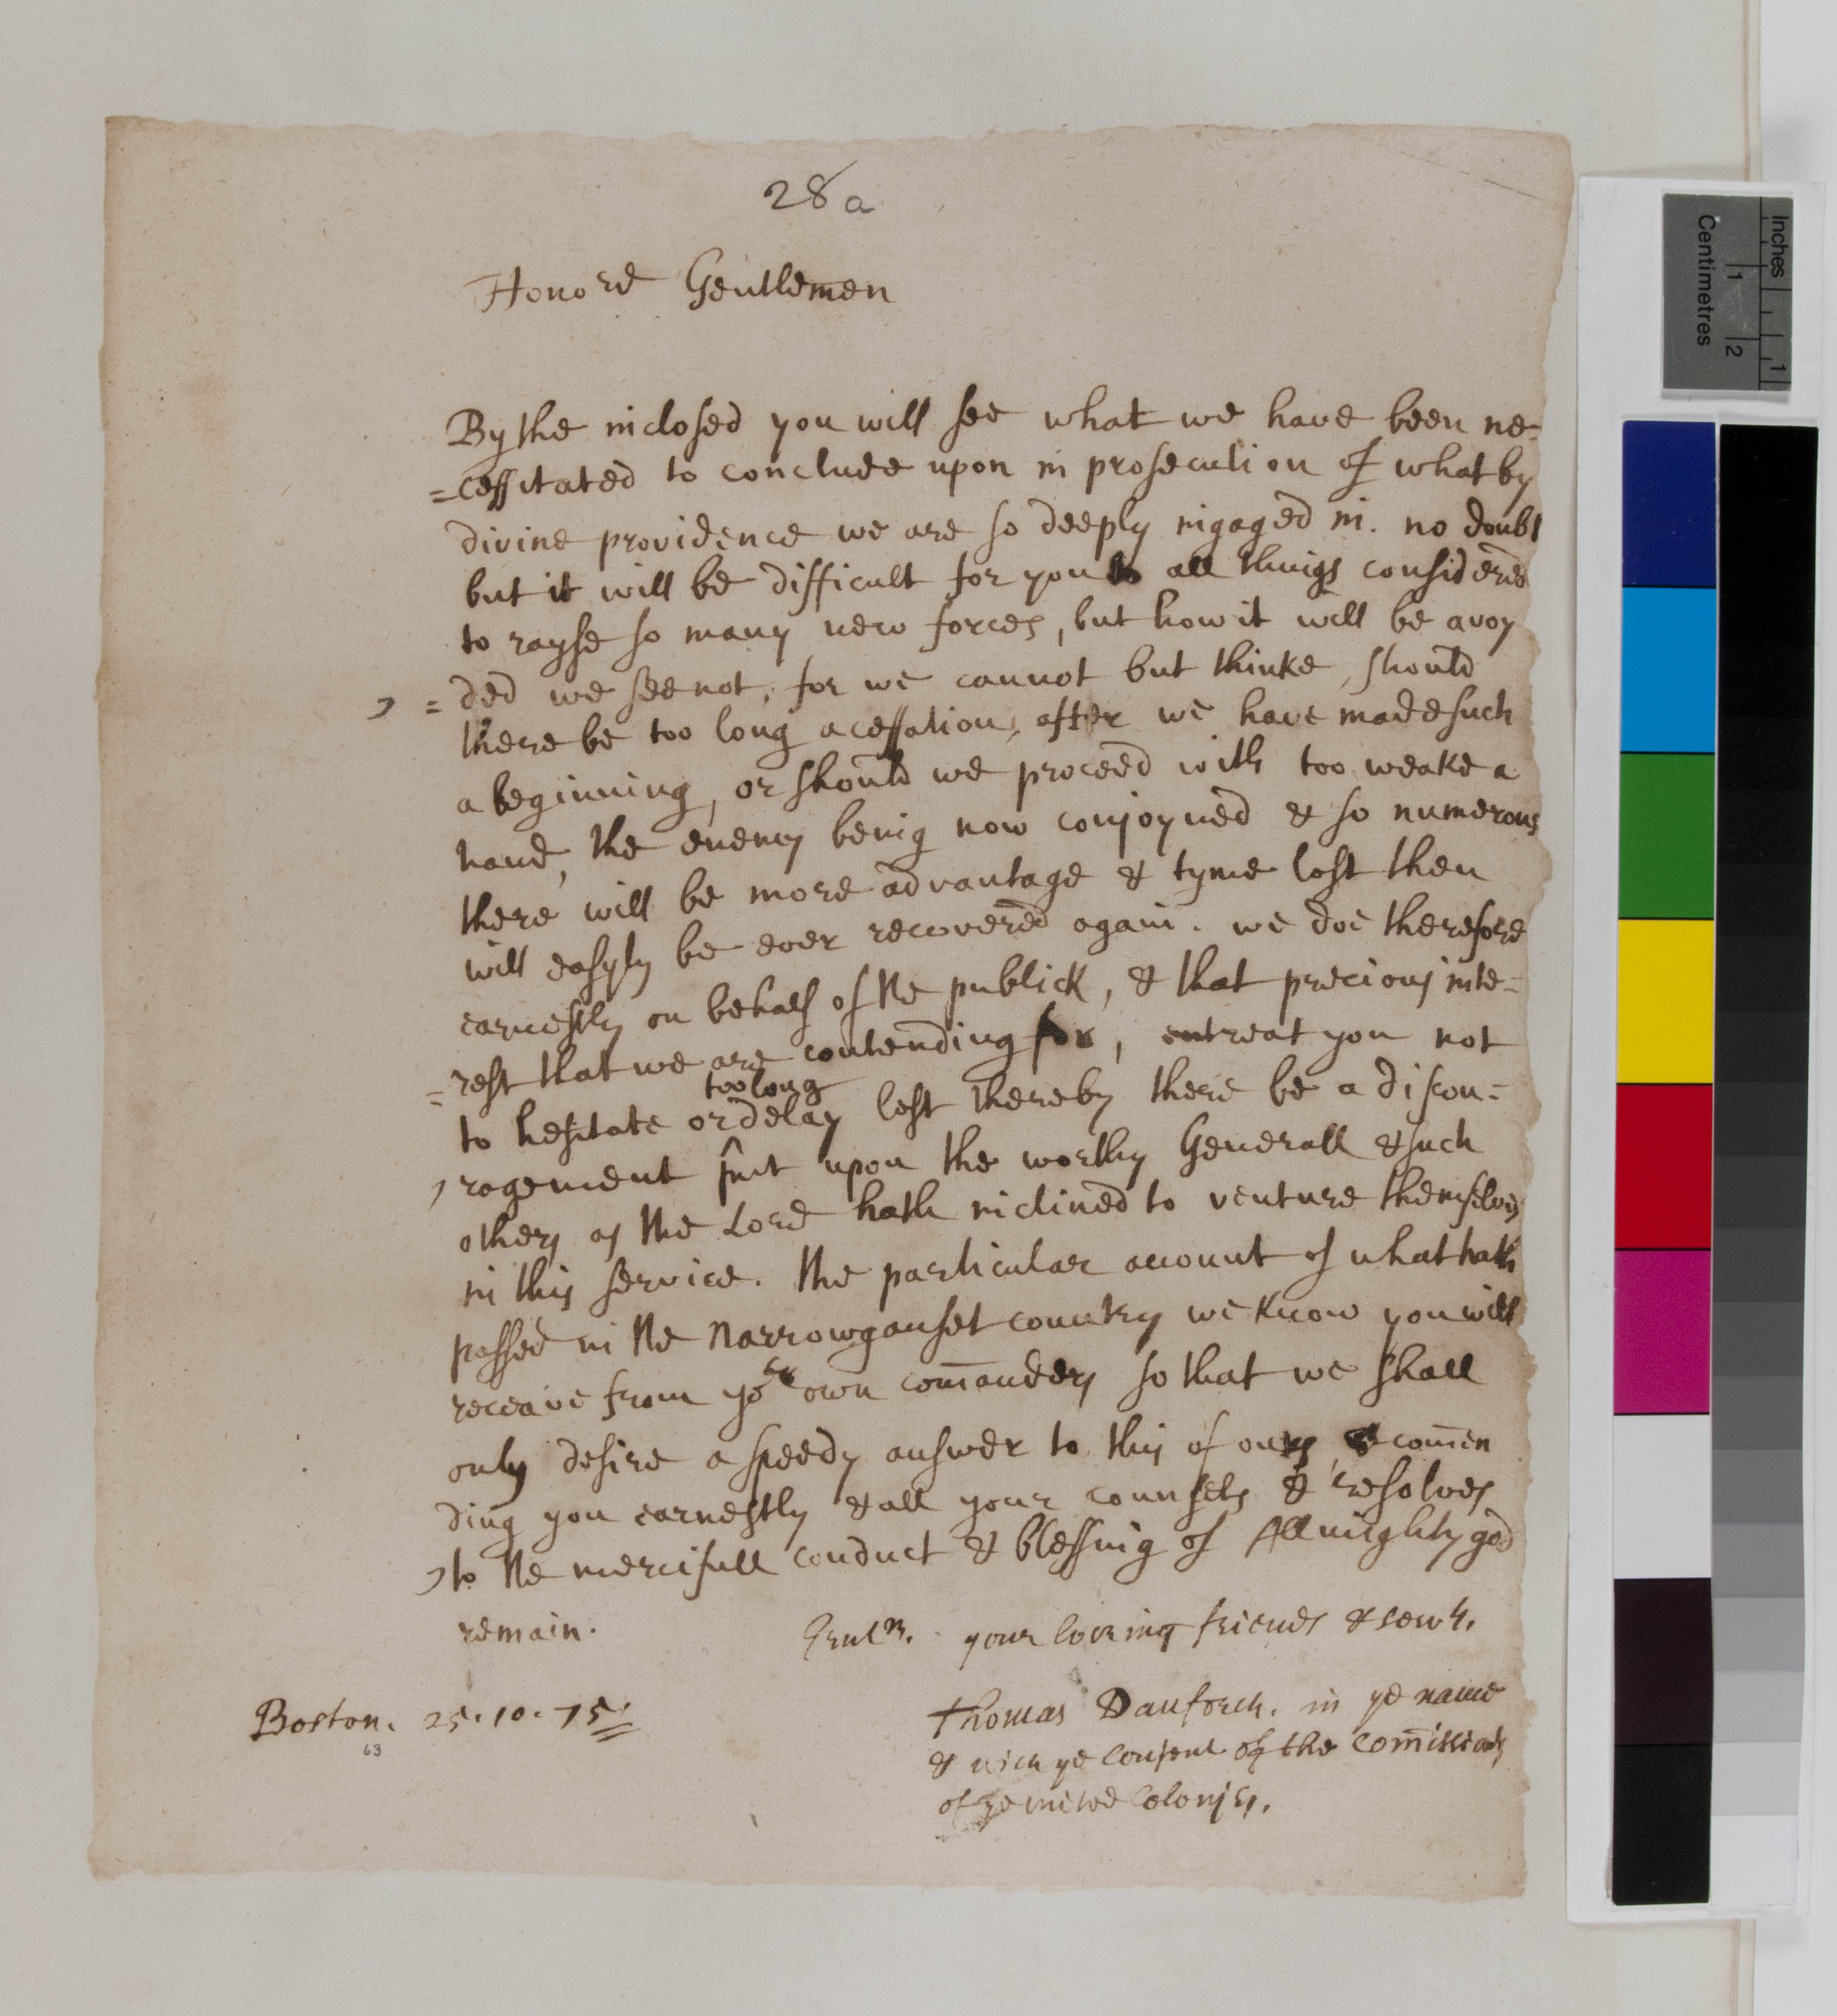 28a
Honord Gentlemen
By the inclosed you will see what we have been ne-
=cessitated to conclude upon in prosecution of what by
divine providence we are so deeply ingaged in. no doubt
but it will be difficult for you all things considered
to rayse so many new forces, but how it will be avoy
=ded we see not, for we cannot but thinke, should
there be too long a cessation, after we have made such
a beginning, or should we proceed with too weake a
hand, the enemy being now conjoyned & so numerous
there will be more advantage & tyme lost then
will easyly be ever recovered again. we doe therefore
earnestly on behalf of the publick, & that precious inte=
=rest that we are contending for, entreat you not
too long
to hesitate or delay lest thereby there be a discou=
ragement put upon the worthy Generall & such
others as the Lord hath inclined to venture themselves
in this service. the particular account of what hath
passed in the Narrowganset country we know you will
receave from yor own comanders so that we shall
only desire a speedy answer to this of ours, & comen
ding you earnestly & all your counsels & resolves
to the mercifull conduct & blessing of Allmighty god
remain.
Gentm. your loveing friends & servts.
Boston. 25.10.75
63
Thomas Danforth. in ye name
& with ye consent of the Comissiors
of ye united Colonies.
Inches
1
Centimetres
1
2